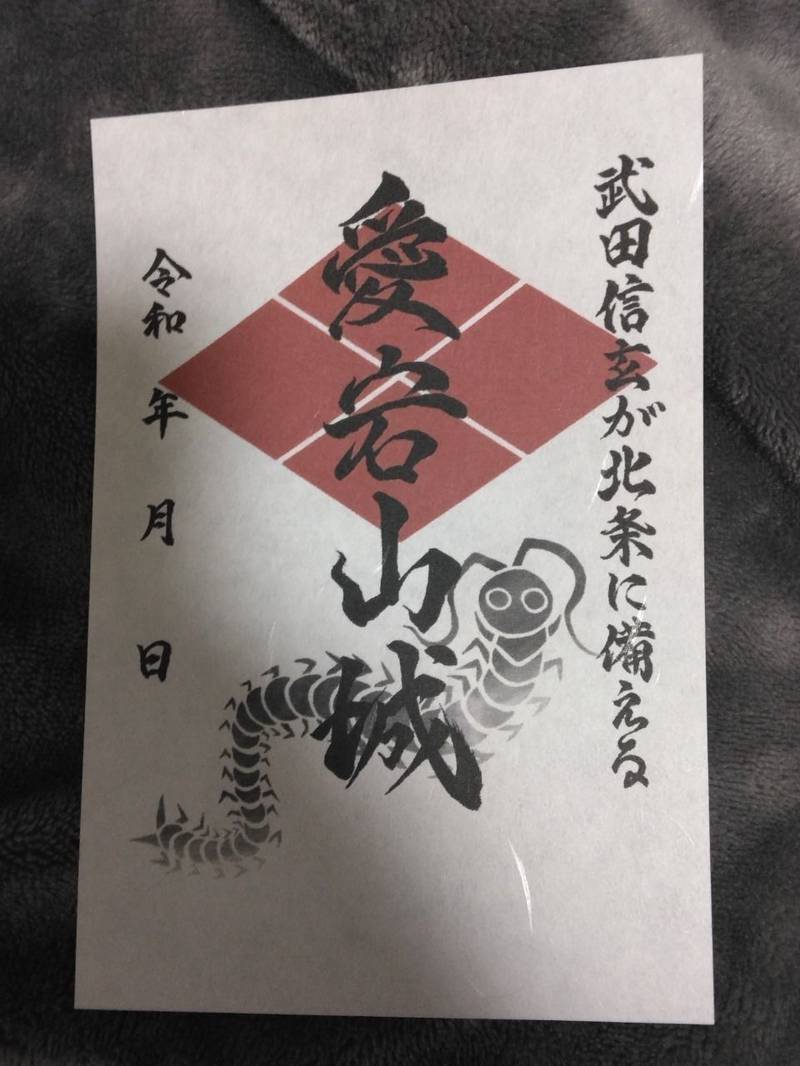 武田信玄が北条に備える
愛宕山城
令和 年 月 日